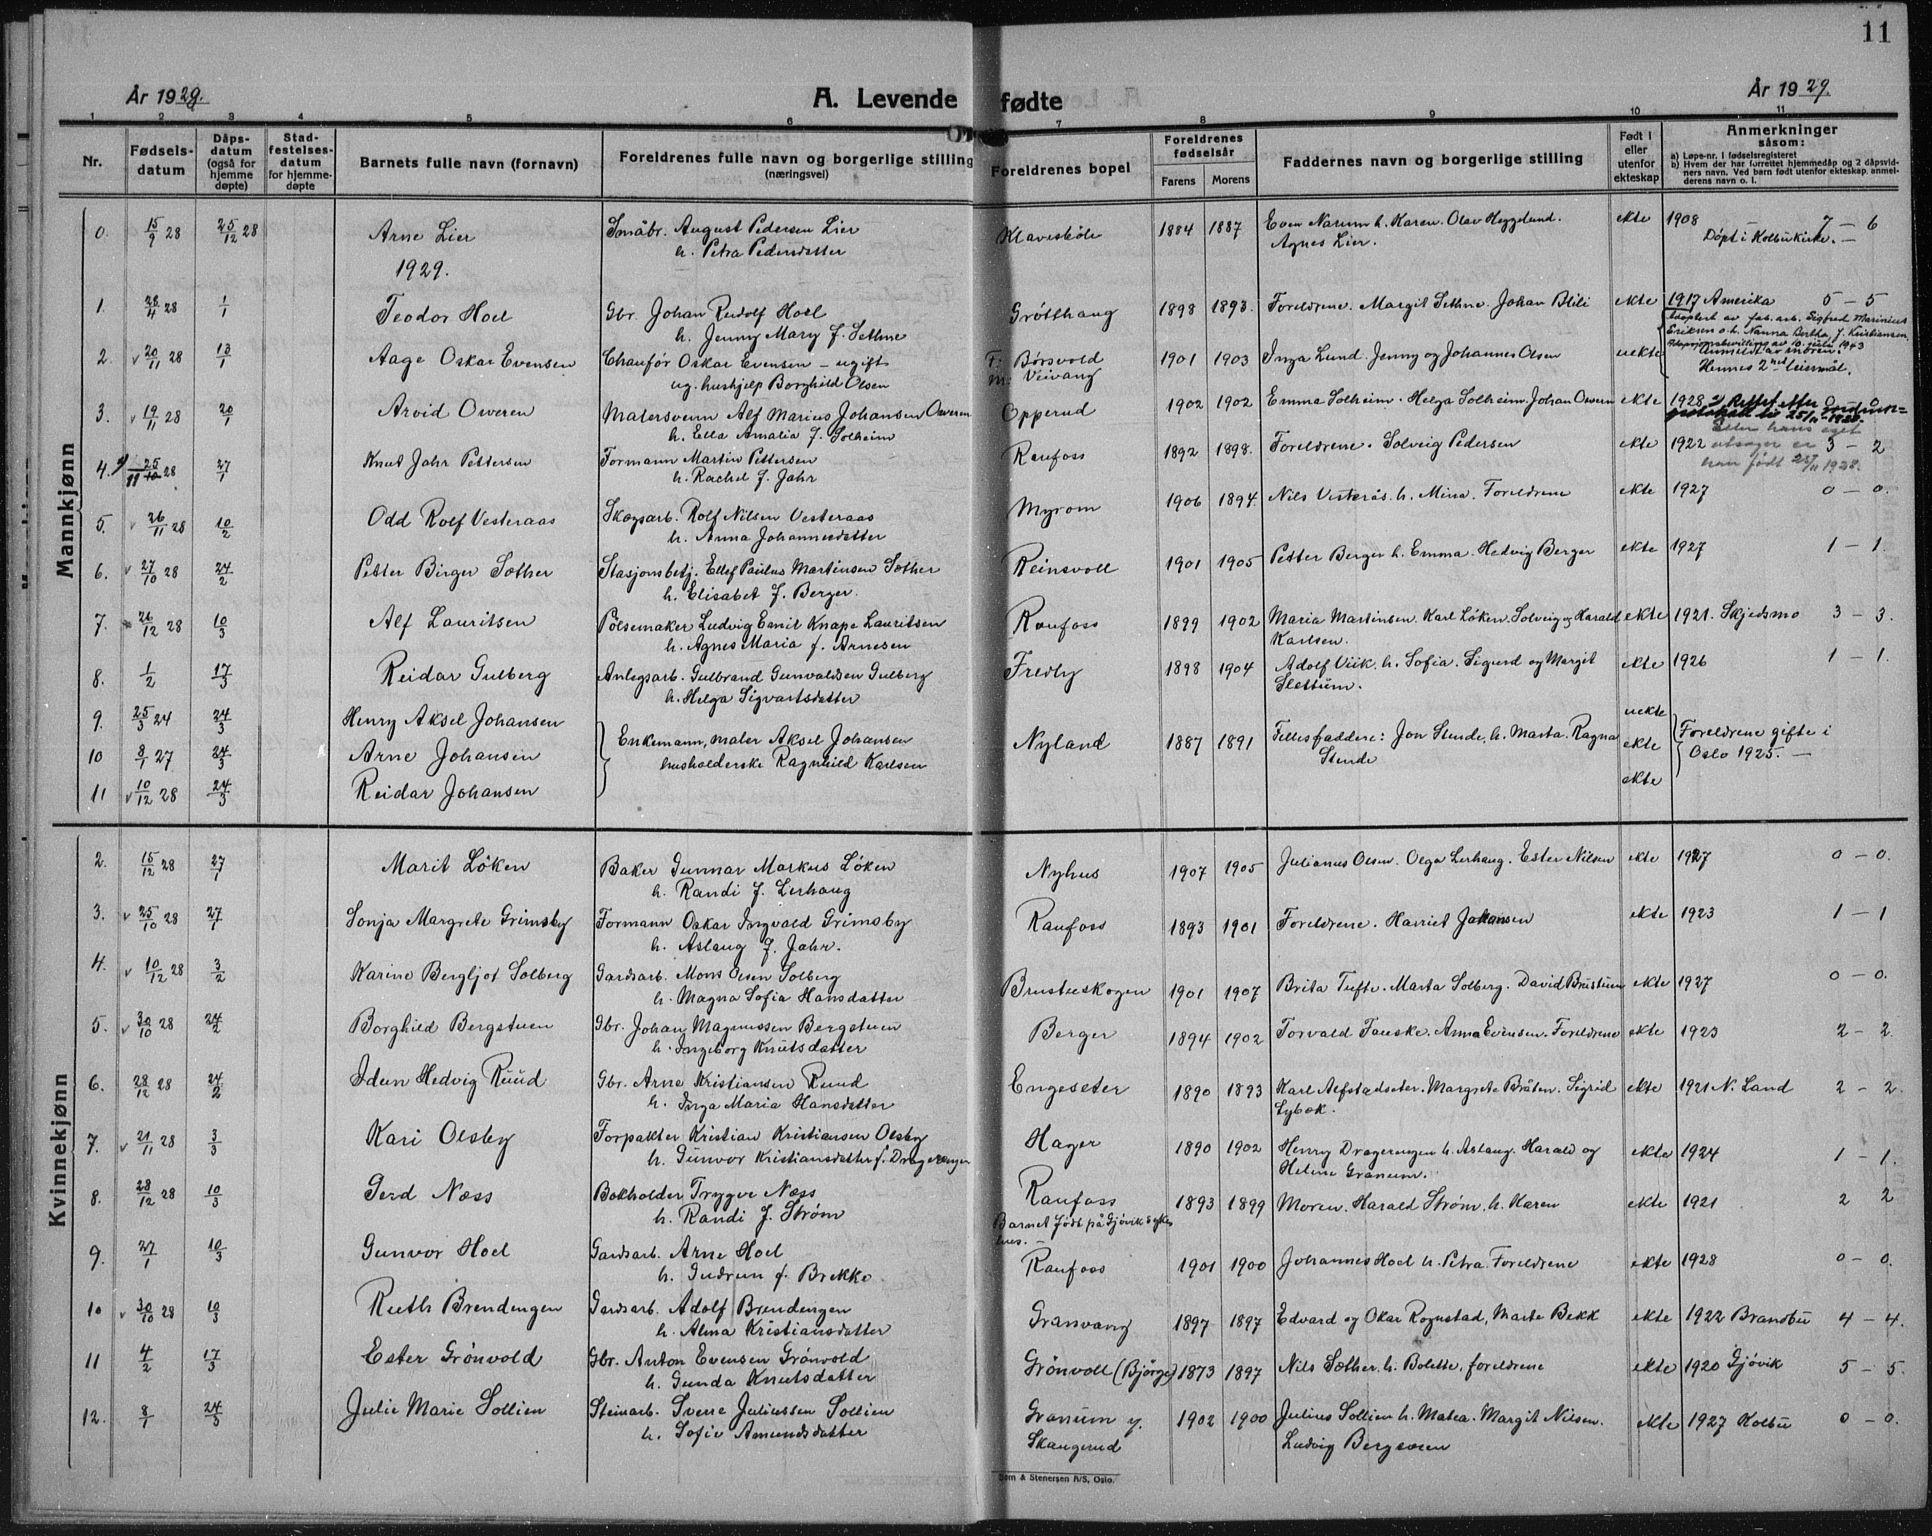 11
År 1929.
A. Levende fødte
År 1929.
1 2 3 4 5 6 7 8 9 10 11
Nr.
Fødsels-datum
Dåps-datum (også for hjemme døpte)
Stad-festelses-datum for hjemme-døpte
Barnets fulle navn (fornavn)
Foreldrenes fulle navn og borgerlige stilling (næringsvei)
Foreldrenes bopel
Foreldrenes fødselsår
Farens Morens
Faddernes navn og borgerlige stilling
Født i eller utenfor ekteskap
Anmerkninger såsom:
a) Løpe-nr. i fødselsregisteret
b) Hvem der har forrettet hjemmedåp og 2 dåpsvidners navn. Ved barn født utenfor ekteskap anmelderens navn o. l.
Mannkjønn
0. 15/9 28 25/12 28 Arne Lier Småbr. August Pedersen Lier Klavesbøle 1884 1887 Even Narum h. Karen. Olav Heggelund. ekte 1908 7 – 6
h. Petra Pedersdatter Agnes Lier. Døpt i Kolbu kirke. –
1929.
1. 28/4 28 1/1 Teodor Hoel Gbr. Johan Rudolf Hoel Grøtthaug 1898 1893. Foreldrene. Margit Sethne. Johan Blili ekte 1917 Amerika 5 – 5
h. Jenny Mary f. Sethne Adoptert av fab.arb. Sigfred Marinius
Eriksen o. h. Nanna Bertha f. Kristiansen,
Adopsjonsbevilling av 10. juli 1943
2. v 20/11 28 13/1 Aage Oskar Evensen Chauffør Oskar Evensen – ugift F: Børsvold 1901 1903 Inga Lund. Jenny og Johannes Olsen uekte Anmeldt av moren.
ug. hushjelp Borghild Olsen M: Veivang Hennes 2net leiermål.
3. v 19/11 28 20/1 Arvid Oweren Malersvenn Alf Marius Johansen Oweren Opperud 1902 1902 Emma Solheim. Helga Solheim Johan Oweren ekte 1928 0 – 0
h. Ella Amalia f. Solheim
4. 25/10 28 11 27/1 Knut Jahr Pettersen Formann Martin Pettersen Raufoss 1892 1898. Foreldrene. Solveig Pedersen ekte 1922 3 – 2
h. Rachel f. Jahr Efter hans eget utsagn er han født 25/11 1928.
5. v 26/11 28 10/2 Odd Rolf Vesteraas Skogsarb. Rolf Nilsen Vesteraas Myrom 1906 1894. Nils Vesterås. h. Mina. Foreldrene ekte 1927 0 – 0.
h. Anna Johannesdatter
6. v 27/10 28 24/2 Petter Birger Sæther Stasjonsbetj. Ellef Paulus Martinsen Sæther Reinsvoll 1901 1905 Petter Berger h. Emma. Hedvig Berger ekte 1927 1 – 1.
h. Elisabet f. Berger.
7. 26/12 28 10/3 Alf Lauritsen Pølsemaker Ludvig Emil Knape Lauritsen Raufoss 1899 1902 Maria Martinsen. Karl Løken. Solveig og Harald ekte 1921. Skjedsmo 3 – 3.
h. Agnes Maria f. Arnesen Karlsen.
8. 1/2 17/3 Reidar Gulberg Anlegsarb. Gulbrand Gunvaldsen Gulberg Fredly 1898 1904 Adolf Viik. h. Sofia. Sigurd og Margit ekte 1926 1 – 1.
h. Helga Sigvartsdatter Slettum.
9. 25/3 24 24/3 Henry Aksel Johansen uekte
10 8/1 27 24/3 Arne Johansen Enkemann, maler Aksel Johansen Nyland 1887 1891 Fellesfaddere: Jon Stende, h. Marta. Ragna ekte Foreldrene gifte i
husholderske Ragnhild Karlsen Stende Oslo 1925. –
11 v 10/12 28 24/3 Reidar Johansen ekte
Kvinnekjønn
2. 15/12 28 27/1 Marit Løken Baker Gunnar Markus Løken Nyhus 1907 1905 Julianus Olsen. Olga Lerhaug. Ester Nilsen ekte 1927 0 – 0.
h. Randi f. Lerhaug
3. v 25/10 28 27/1 Sonja Margrete Grimsby Formann Oskar Ingvald Grimsby Raufoss 1893 1901 Foreldrene. Harriet Johansen ekte 1923 1 – 1
h. Aslaug f. Jahr.
4. v 10/12 28 3/2 Karine Bergljot Solberg Gardsarb. Mons Olsen Solberg Brustuskogen 1901 1907 Brita Tufte. Marta Solberg. David Brustuen ekte 1927 0 – 0.
h. Magna Sofia Hansdatter
5. v 30/10 28 24/2 Borghild Bergstuen Gbr. Johan Magnussen Bergstuen Berger 1894 1902 Torvald Fauske. Anna Evensen. Foreldrene ekte 1923 2 – 2.
h. Ingeborg Knutsdatter
6. 28/12 28 24/2 Idun Hedvig Ruud Gbr. Arne Kristiansen Ruud Engeseter 1890 1893 Karl Alfstadseter. Margrete Bråten. Sigrid ekte 1921 N. Land 2 – 2.
h. Inga Maria Hansdatter Lybek.
7. v 21/11 28 3/3 Kari Olsby Forpakter Kristian Kristiansen Olsby Hager 1890 1902 Henry Dragerengen h. Aslaug. Harald og ekte 1924 1 – 1.
h. Gunvor Kristiansdatter f. Dragerengen Helene Granum.
8. 28/12 28 10/3 Gerd Næss Bokholder Trygve Næss Raufoss 1893 1899 Moren. Harald Strøm. h. Karen ekte 1921 2 2
h. Randi f. Strøm Barnet født på Gjøvik sykehus. –
9. 27/1 10/3 Gunvor Hoel Gardsarb. Arne Hoel Raufoss 1901 1900 Johannes Hoel h. Petra. Foreldrene ekte 1928 0 – 0.
h. Gudrun f. Brekke.
10 v 30/10 28 10/3 Ruth Brendengen Gardsarb. Adolf Brendengen Granvang 1897 1897 Edvard og Okar Rognstad, Marte Bekk ekte 1922 Brandbu 4 – 4.
h. Alma Kristiansdatter
11 4/2 17/3 Ester Grønvold Gbr. Anton Evensen Grønvold Grønvoll (Bjørge) 1873 1897 Nils Sæther. h. Bolette, foreldrene ekte 1920 Gjøvik 5 – 5.
h. Gunda Knutsdatter
12. 8/1 24/3 Julie Marie Sollien Steinarb. Sverre Juliussen Sollien Granum y. 1902 1900 Julius Sollien h. Matea. Margit Nilsen. ekte 1927 Kolbu 0 – 0.
h. Sofie Amundsdatter Skaugerud Ludvig Bergsveen
Dørn & Stenersen A/S, Oslo.